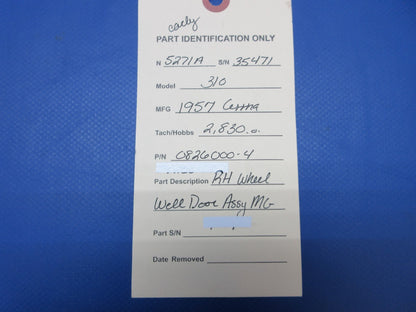 early
PART IDENTIFICATION ONLY
N 5271A S/N 35471
Model 310
MFG 1957 Cessna
Tach/Hobbs 2,830.0
P/N 0826000-4
Part Description RH Wheel
Well Door Assy MG
Part S/N
Date Removed